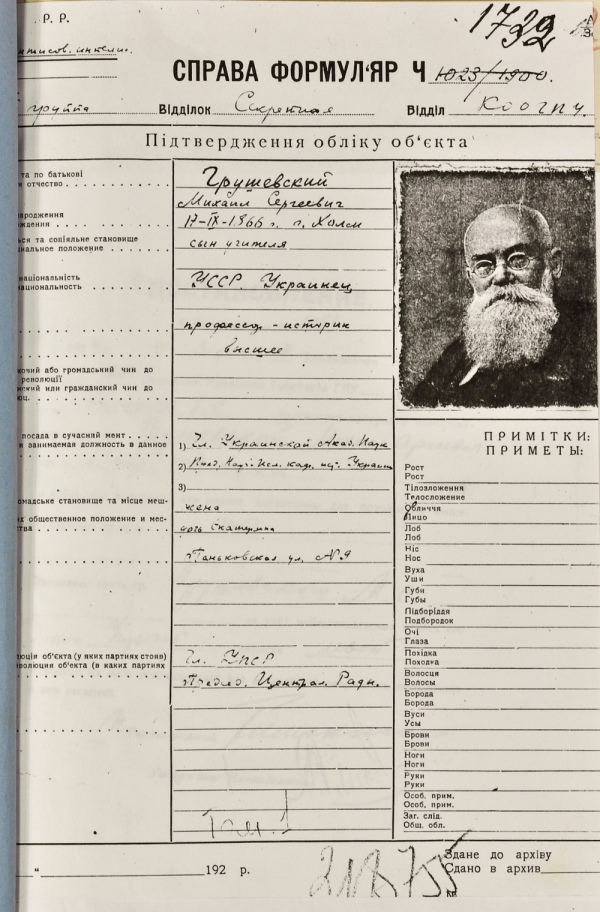 Р. Р.
1732
СПРАВА ФОРМУЛ'ЯР Ч 1023/1900.
группа Відділок Секретная Відділ КООГПУ.
Підтвердження обліку об'єкта
та по батькові
и отчество
Грушевский
Михаил Сергеевич
народження
ждения
17-IX-1866 г. г. Холм
ься та соціяльне становище
иальное положение
сын учителя
національність
национальность
УССР. Украинец
профессор - историк
высшее
очий або громадський чин до
революції
нский или гражданский чин до
юц.
посада в сучасний мент
и занимаемая должность в данное
1) Чл. Украинской Акад. Наук
2)
3)
ромадське становище та місце меш-
их общественное положение и мес-
тва
жена
дочь Екатерина
Паньковская ул. № 9
люція об'єкта (у яких партиях стояв)
волюция об'єкта (в каких партиях
Чл. УПСР
Председ. Централ. Рады.
Том 1
ПРИМІТКИ:
ПРИМЕТЫ:
Рост
Рост
Тілозложення
Телосложение
Обличчя
Лицо
Лоб
Лоб
Ніс
Нос
Вуха
Уши
Губи
Губы
Підборіддя
Подбородок
Очі
Глаза
Похідка
Походка
Волосся
Волосы
Борода
Борода
Вуси
Усы
Брови
Брови
Ноги
Ноги
Руки
Руки
Особ. прим.
Особ. прим.
Заг. слід.
Общ. обл.
„ 192 р.
Здане до архіву
Сдано в архив